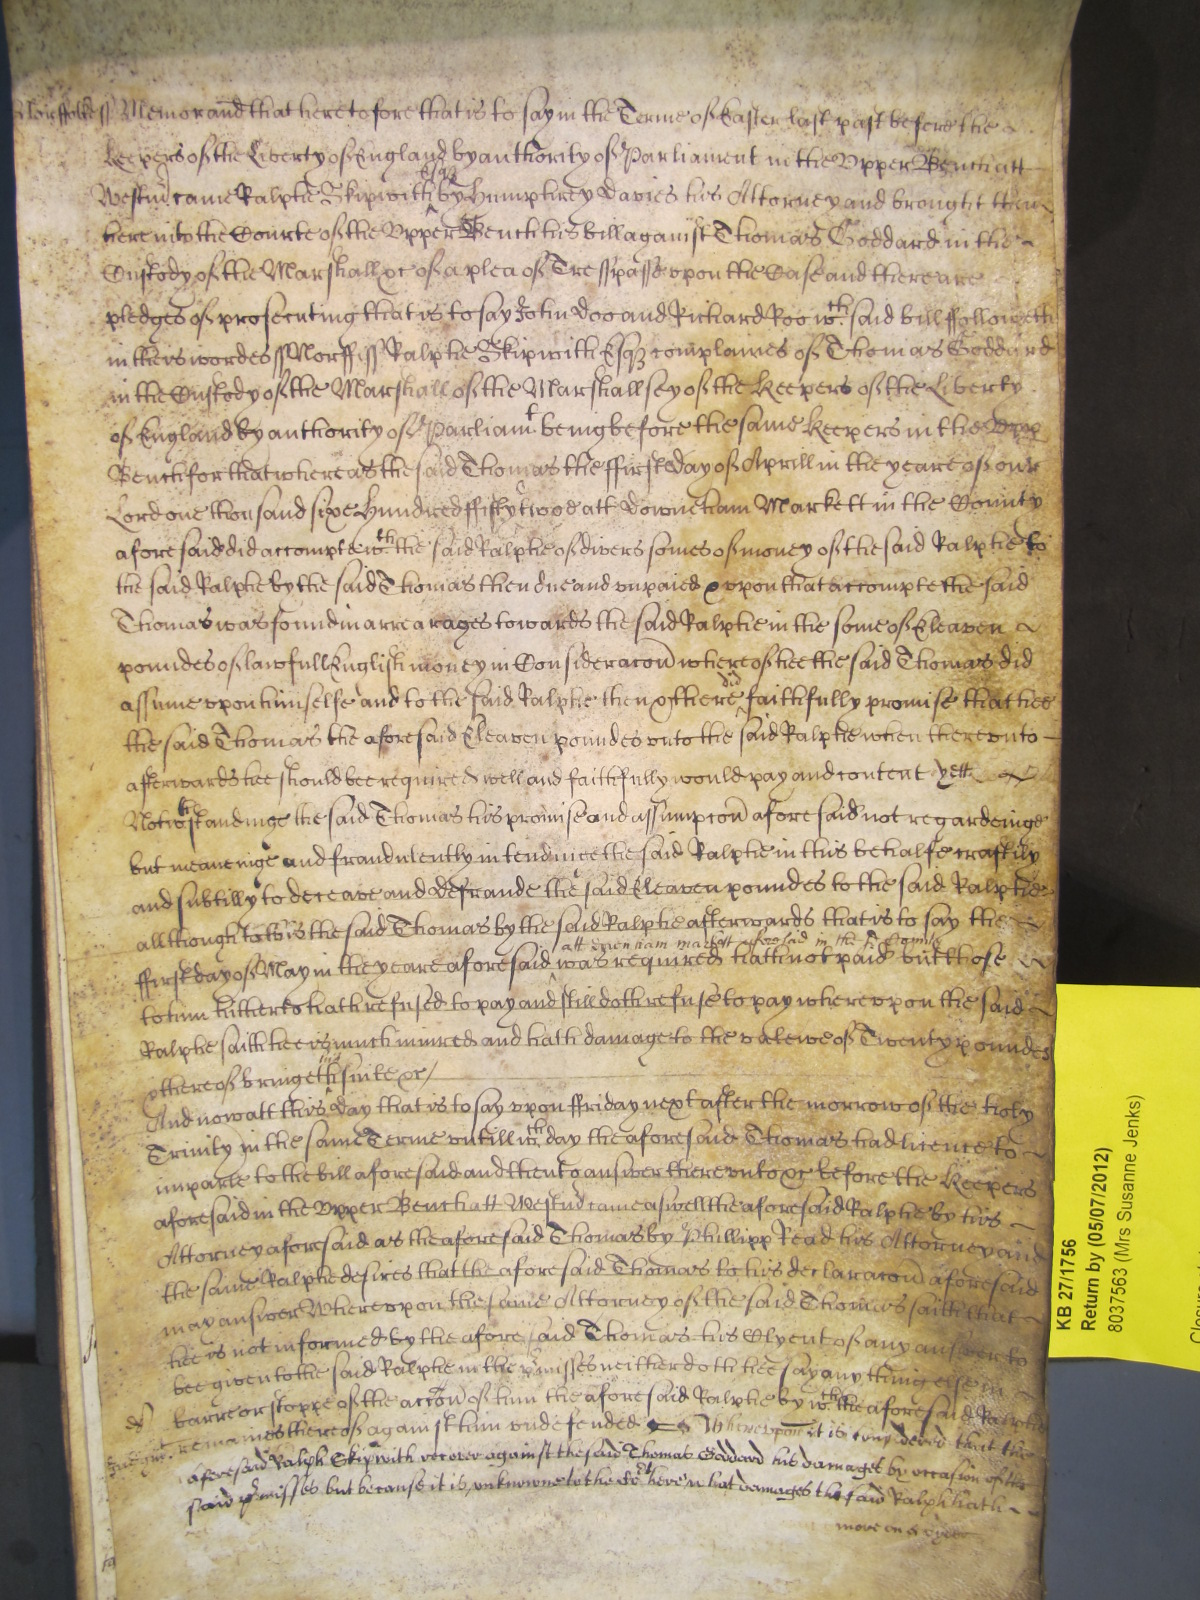 Norffolke ss Memorand that heretofore that is to say in the Terme of Easter last past before the
Keepers of the Liberty of England by authority of Parliament in the Upper Bench att
Westm came Ralphe Skipwith Esqr by Humphrey Davies his Attorney and brought then
here into the Courte of the Upper Bench his bill against Thomas Goddard in the
Custody of the Marshall &c of a plea of Tresspasse upon the Case and there are
pledges of prosecuting that is to say John Doo and Richard Roo wch said bill ffolloweth
in theis wordes ss Norff ss Ralphe Skipwith Esqr complaines of Thomas Goddard
in the Custody of the Marshall of the Marshallsey of the Keepers of the Liberty
of England by authority of Parliamt being before the same Keepers in the Upp
Bench for that whereas the said Thomas the ffirst day of Aprill in the yeare of our
Lord one thousand sixe Hundred ffifty twoe att Downeham Markett in the County
aforesaid did accompte wth the said Ralphe of divers somes of money of the said Ralphe to
the said Ralphe by the said Thomas then due and unpaied & upon that accompte the said
Thomas was found in arrearages towards the said Ralphe in the some of Eleaven
poundes of lawfull English money in Consideracon whereof hee the said Thomas did
assume upon himselfe and to the said Ralphe then & there did faithfully promise that hee
the said Thomas the aforesaid Eleaven poundes unto the said Ralphe when thereunto
afterwards hee should bee required well and faithfully would pay and content yett
Notwthstandinge the said Thomas his promise and assumpcon aforesaid not regardeinge
but meaneinge and fraudulently intendinge the said Ralphe in this behalfe craftily
and subtilly to deceave and defraude the said Eleaven poundes to the said Ralphe
allthough to this the said Thomas by the said Ralphe afterwards that is to say the
att Downham markett aforesaid in the County
ffirst day of May in the yeare aforesaid was required hath not paid but those
to him hitherto hath refused to pay and still doth refuse to pay whereupon the said
Ralphe saith hee is much injured and hath damage to the valewe of Twenty poundes
& thereof bringeth his suite &c/
And now att this day that is to say upon ffriday next after the morrow of the holy
Trinity in the same Terme untill wch day the aforesaid Thomas had licence to
imparle to the bill aforesaid and then to answer thereunto &c before the Keepers
aforesaid in the Upper Bench att Westm came aswell the aforesaid Ralphe by his
Attorney aforesaid as the aforesaid Thomas by Phillipp Read his Attorney and
the same Ralphe desires that the aforesaid Thomas to his declaracon aforesaid
may answer Whereupon the same Attorney of the said Thomas saith that
hee is not informed by the aforesaid Thomas his Clyent of any answer to
bee given to the said Ralphe in the pmisses neither doth hee say any thing else in
barre or stoppe of the accon of him the aforesaid Ralphe by wch the aforesaid Ralphe
remaines thereof against him undefended Whereupon it is considered that the
aforesaid Ralph Skipwith recover against the said Thomas Goddard his damages by occasion of the
said pmisses but because it is unknowne to the Cort here what damages the said Ralph hath
more on ye other
KB 27/1756
Return by (05/07/2012)
8037563 (Mrs Susanne Jenks)